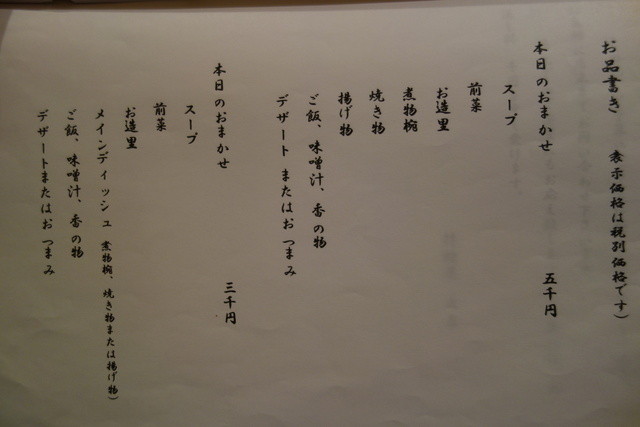 お品書き　表示価格は税別価格です）
本日のおまかせ　五千円
スープ
前菜
お造里
煮物椀
焼き物
揚げ物
ご飯、味噌汁、香の物
デザートまたはおつまみ
本日のおまかせ　三千円
スープ
前菜
お造里
メインディッシュ　煮物椀、焼き物または揚げ物）
ご飯、味噌汁、香の物
デザートまたはおつまみ